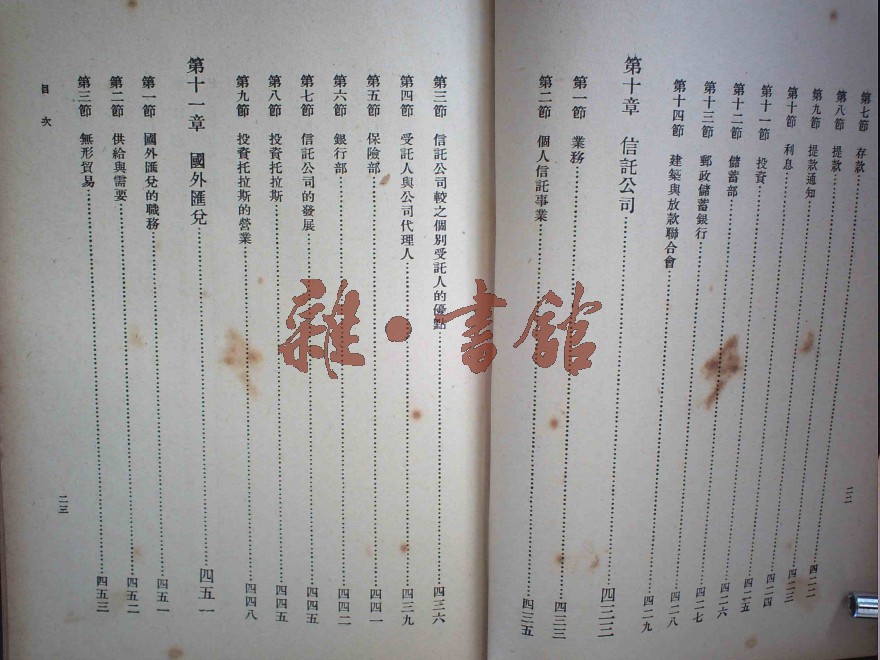 第七節 存款……四二二
第八節 提款……四二三
第九節 提款通知……四二四
第十節 利息……四二五
第十一節 投資……四二六
第十二節 儲蓄部……四二七
第十三節 郵政儲蓄銀行……四二八
第十四節 建築與放款聯合會……四二九
第十章 信託公司……四三三
第一節 業務……四三三
第二節 個人信託事業……四三五
二二
第三節 信託公司較之個別受託人的優點……四三六
第四節 受託人與公司代理人……四三九
第五節 保險部……四四一
第六節 銀行部……四四二
第七節 信託公司的發展……四四五
第八節 投資托拉斯……四四五
第九節 投資托拉斯的營業……四四八
第十一章 國外匯兌……四五一
第一節 國外匯兌的職務……四五一
第二節 供給與需要……四五二
第三節 無形貿易……四五三
目次
二三
雜·書館